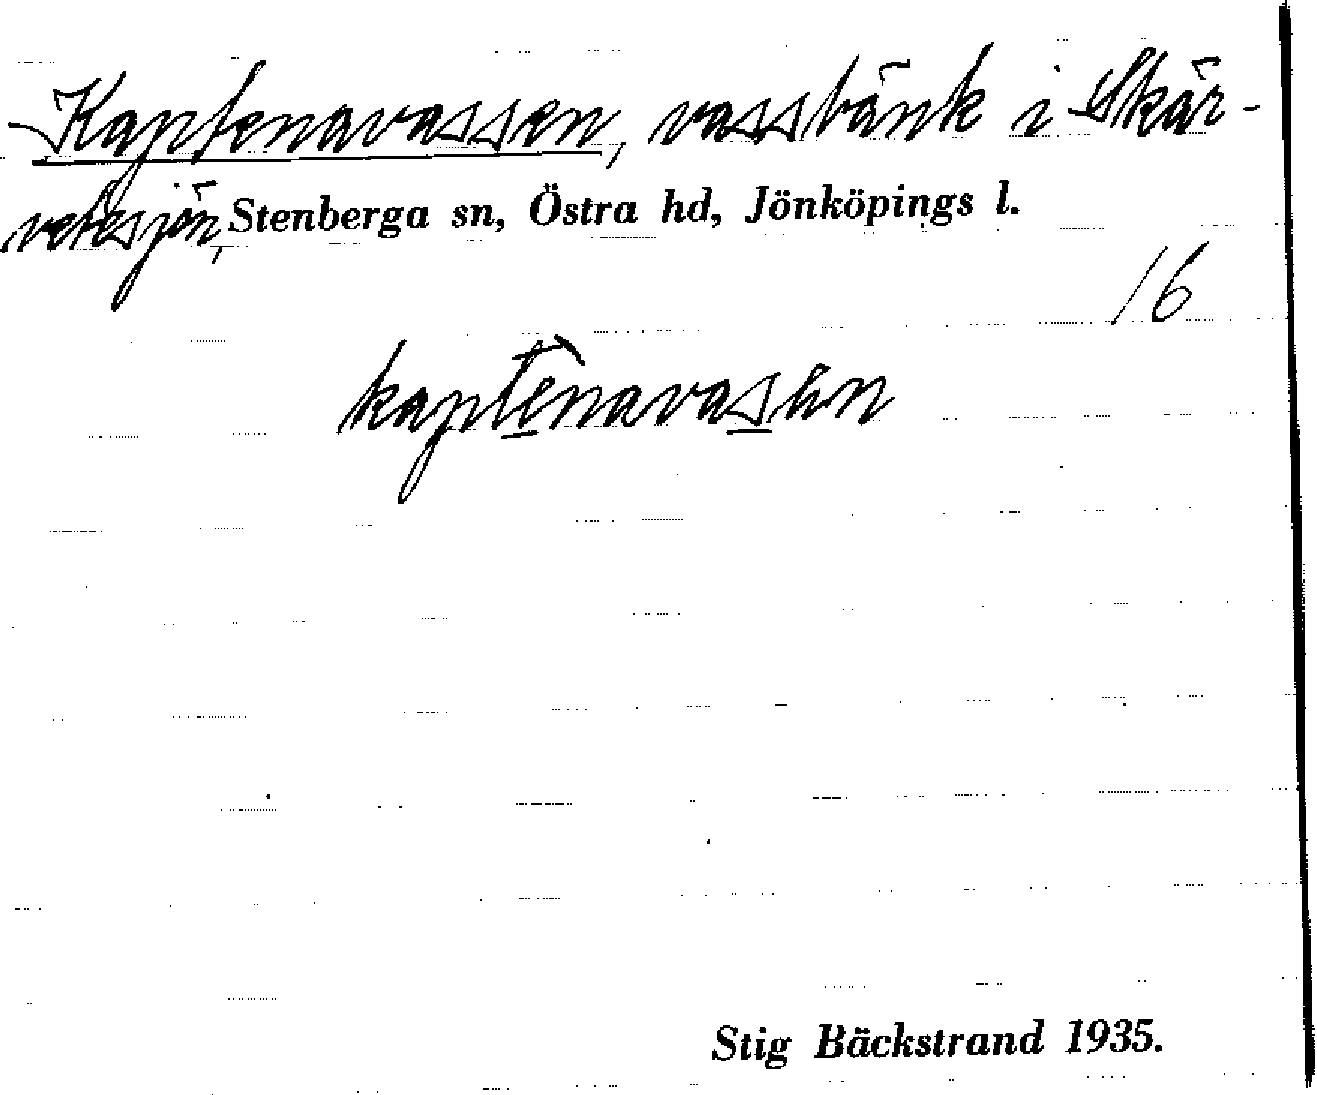 Kaptenavassen, vassbänk i Skär-
vetesjön, Stenberga sn, Östra hd, Jönköpings l.
16
Stig Bäckstrand 1935.